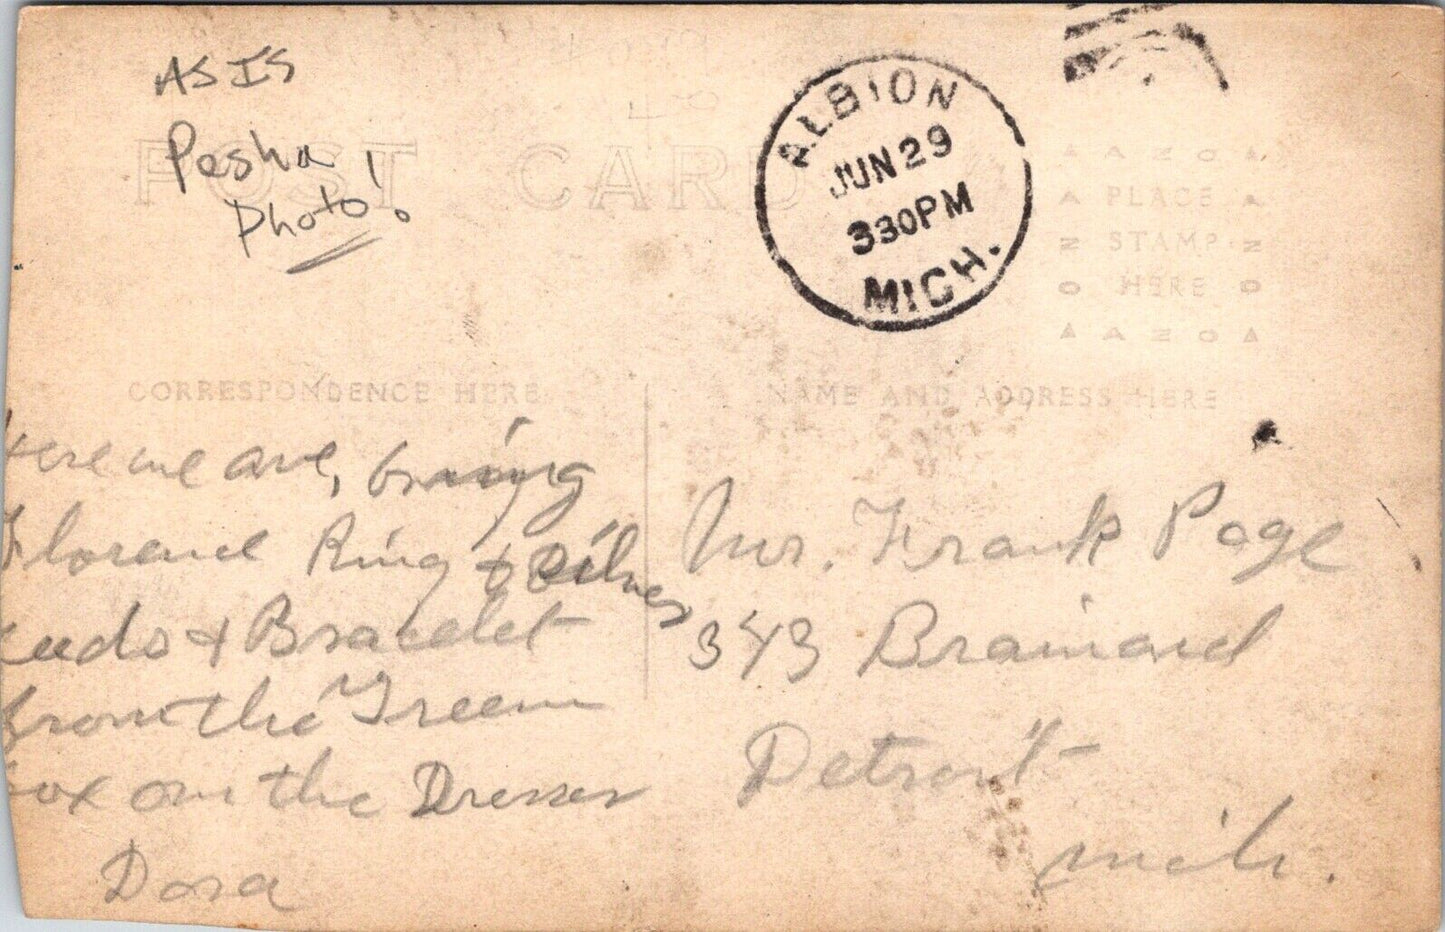 AS IS
Pesha
Photo!
POST CARD
ALBION
JUN 29
330PM
MICH.
AZOA
PLACE
STAMP
HERE
AZOA
CORRESPONDENCE HERE
NAME AND ADDRESS HERE
Here we are, bring
Florence Ring & Silver
& Bracelet
from the Green
box on the Dresser
Dora
Mr. Frank Page
343 Brainard
Detroit
Mich.